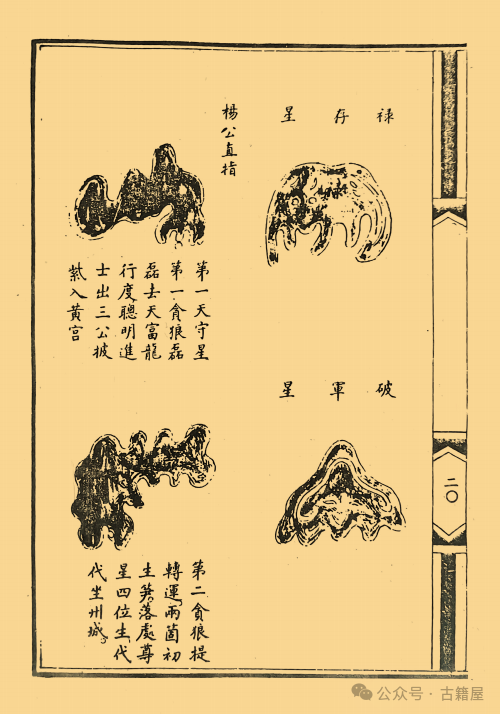 禄存星
破軍星
楊公直指
第一天守星
第一貪狼磊
磊去天富龍
行度聰明進
士出三公披
紫入黄宫
第二貪狼提
轉運兩箇初
生笋落處尊
星四位生代
代坐州城
二〇
公众号·古籍屋